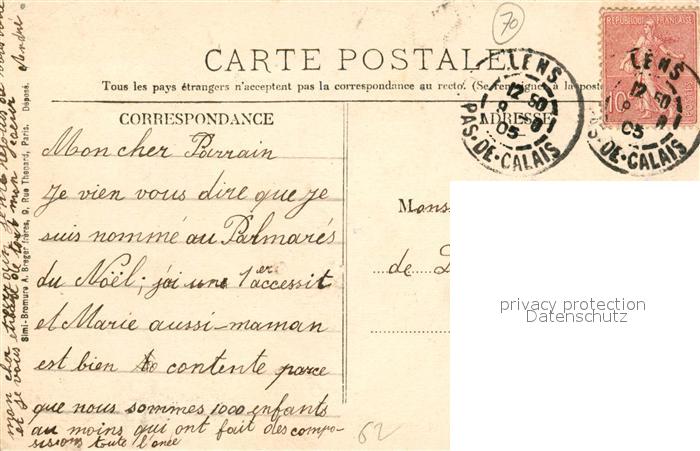 70
CARTE POSTALE
Tous les pays étrangers n'acceptent pas la correspondance au recto. (Se renseigner à la poste
CORRESPONDANCE
ADRESSE
RÉPUBLIQUE FRANÇAISE
10
LENS
12 50
8
05
PAS-DE-CALAIS
LENS
12 50
8
05
PAS-DE-CALAIS
Mon cher Parrain
Je vien vous dire que je
suis nommé au Palmarés
du Noël; j'ai une 1er accessit
et Marie aussi-maman
est bien contente parce
que nous sommes 1000 enfants
au moins qui ont fait des compo-
sisions toute l'anée
Mons
de
62
Simi-Bromure A. Breger frères, 9, Rue Thenard, Paris. Déposé.
mon cher
et je vous de tout mon cœur
André
privacy protection
Datenschutz